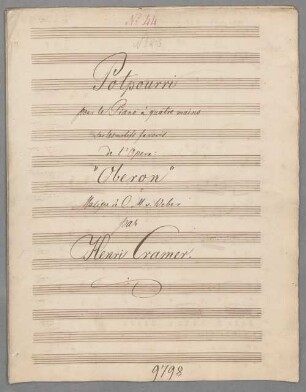 No 44
Potpourri
pour le Piano à quatre mains
sur les motifs favoris
de l'Opera:
"Oberon"
Musique de C. M. v. Weber
par
Henri Cramer.
9798